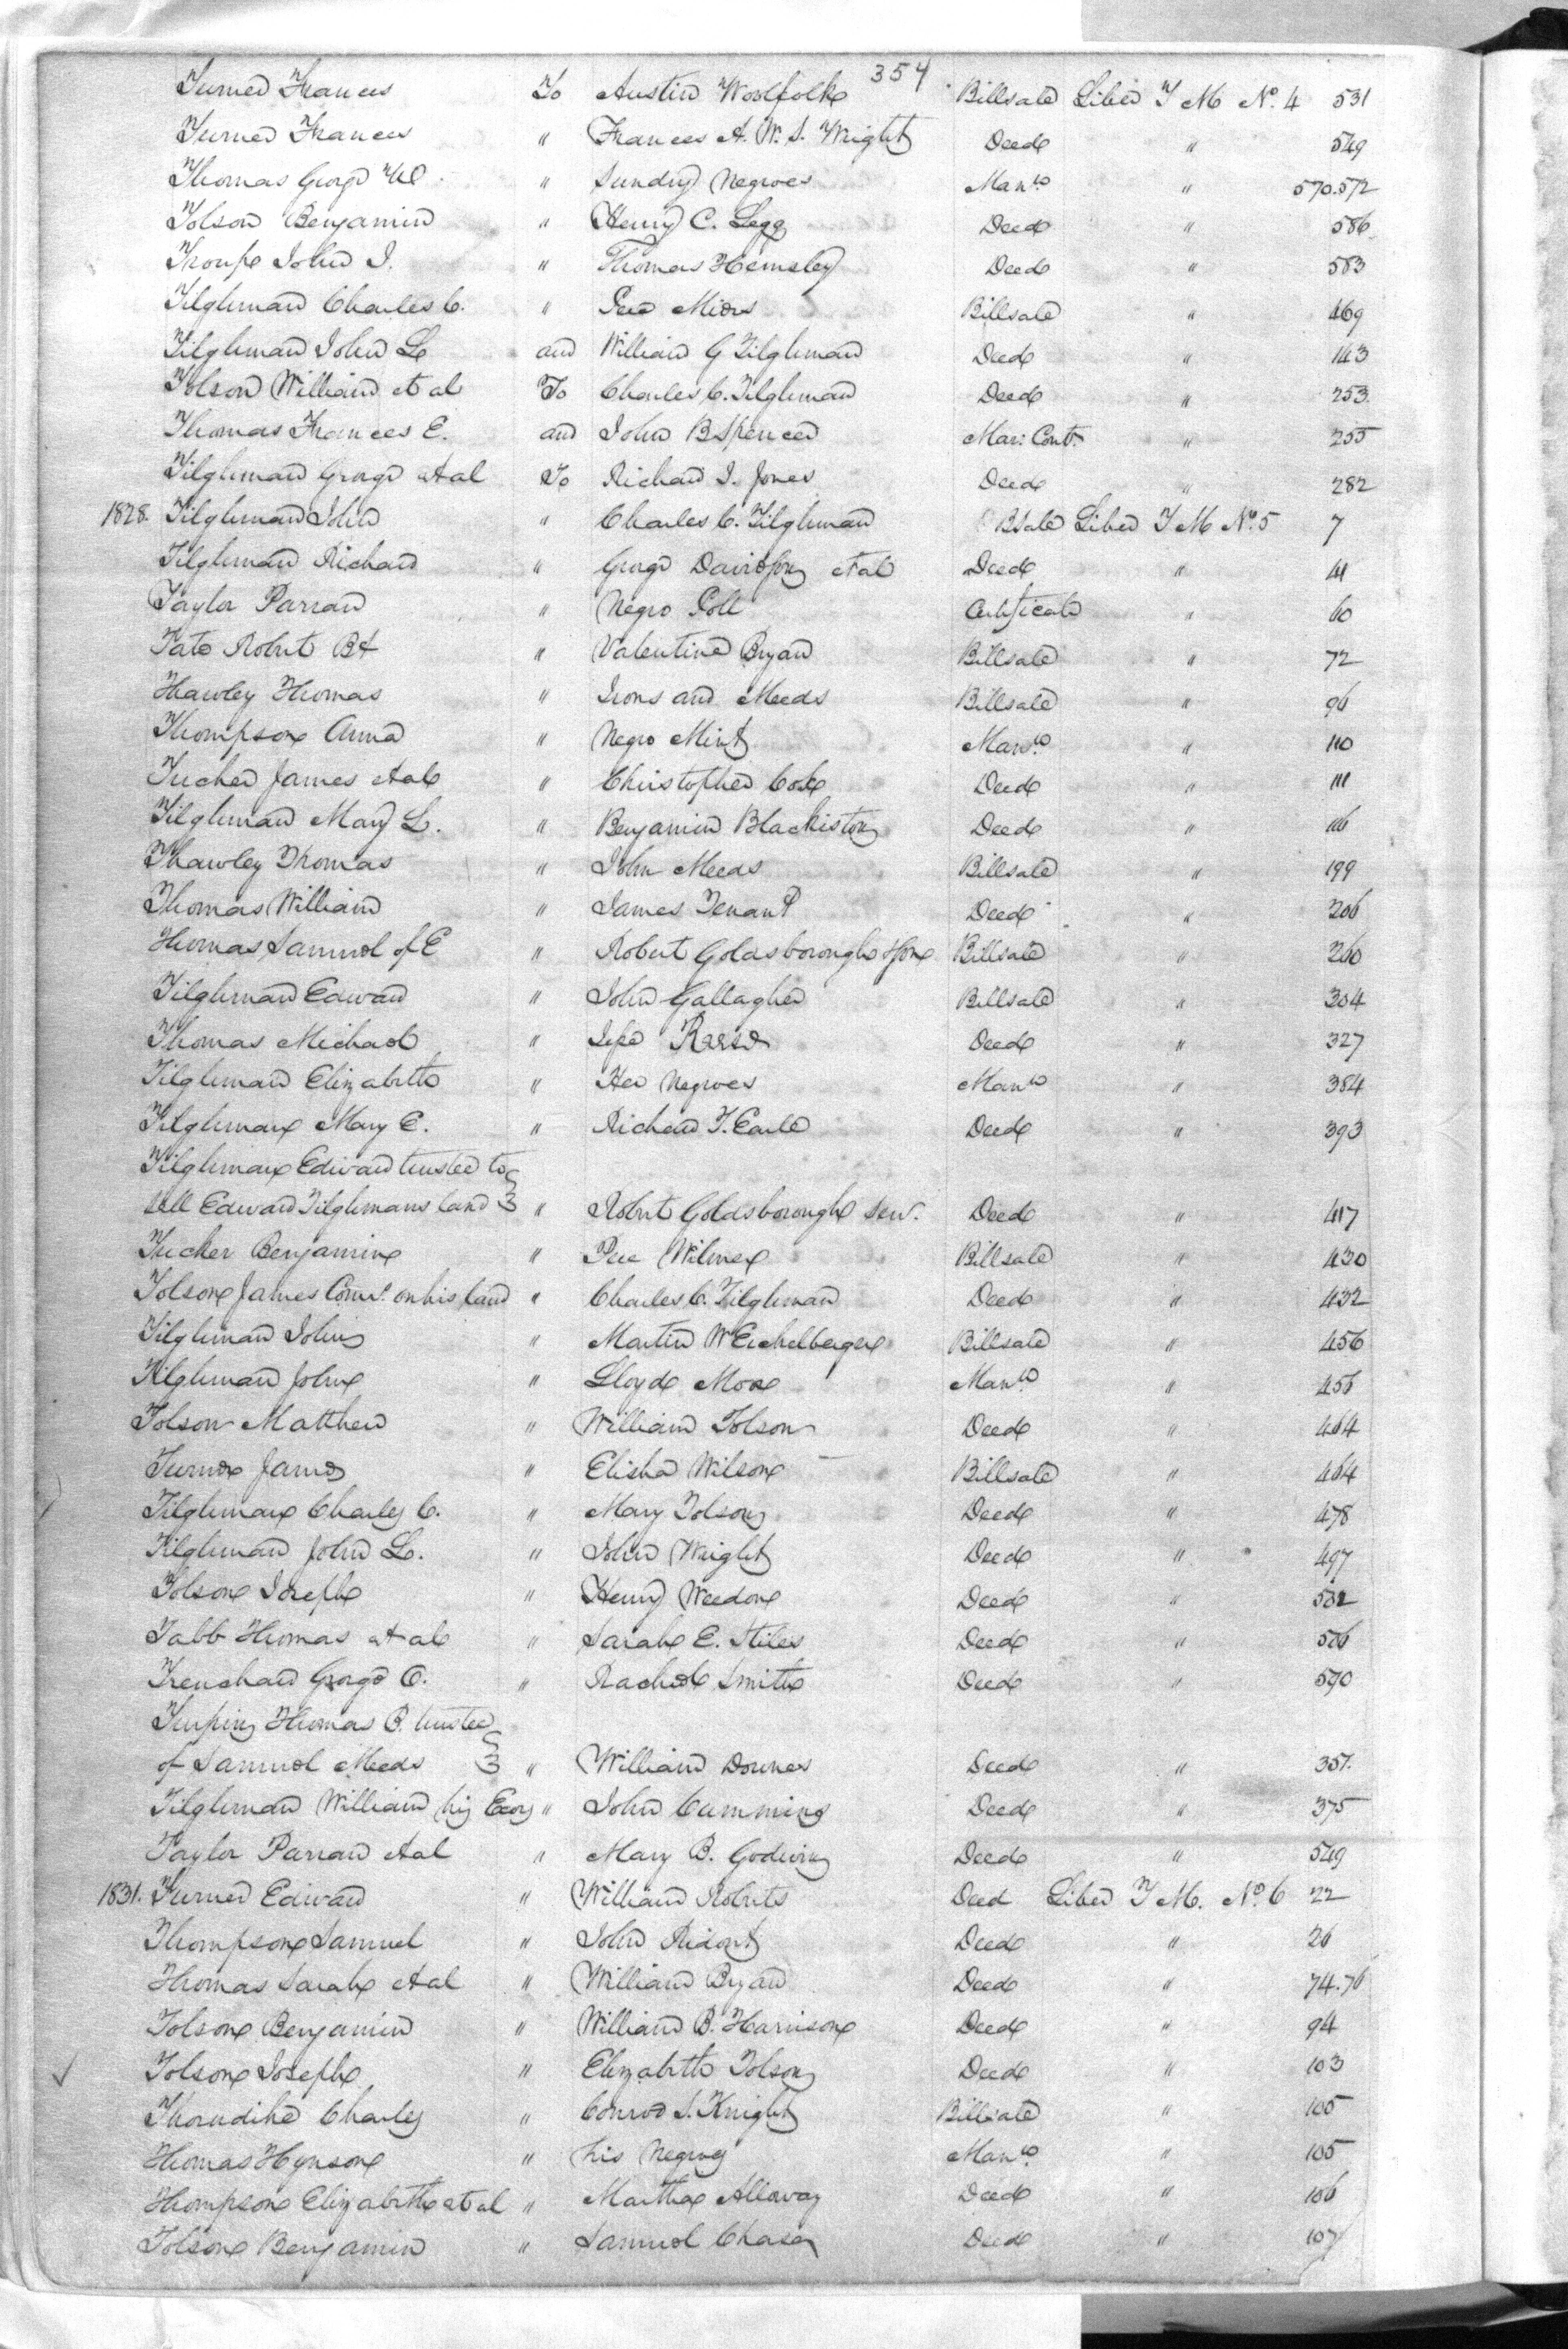 354
Turner Frances To Austin Woolfolk Billsale Liber T M No. 4 531
Turner Frances " Frances A. W. S. Wright Deed " 549
Thomas George " Sundry Negroes Manⁿ " 570.572
Tolson Benjamin " Henry C. Legg Deed " 586
Troupe John I. " Thomas Hemsley Deed " 583
Tilghman Charles C. " Billsale " 469
Tilghman John L and William G Tilghman Deed " 143
Tolson William et al To Charles C. Tilghman Deed " 253
Thomas Frances E. and John B Spencer Mar: Cont. " 255
Tilghman George et al To Richard I. Jones Deed " 282
1828. Tilghman John " Charles C. Tilghman BSale Liber T M No. 5 7
Tilghman Richard " George Davidson et al Deed " 41
Taylor Parran " Negro Poll Certificate " 60
Tate Robert " Valentine Bryan Billsale " 72
Thawley Thomas " Irons and Meeds Billsale " 96
Thompson Anna " Negro Mint Manⁿ " 110
Tucker James et al " Christopher Cox Deed " 111
Tilghman Mary L. " Benjamin Blackiston Deed " 116
Thawley Thomas " John Meeds Billsale " 199
Thomas William " James Tenant Deed " 206
Thomas Samuel of E " Robert Goldsborough Billsale " 260
Tilghman Edward " John Gallagher Billsale " 304
Thomas Michael " Deed " 327
Tilghman Elizabeth " Her Negroes Manⁿ " 384
Tilghman Mary E. " Richard T. Earle Deed " 393
Tilghman Edward trustee to
sell Edward Tilghmans land " Robert Goldsborough Sen. Deed " 417
Tucker Benjamin " Pere Wilmer Billsale " 430
Tolson James Comrs. on his land " Charles C. Tilghman Deed " 432
Tilghman John " Martin W Eichelberger Billsale " 456
Tilghman John " Lloyd Moore Manⁿ " 456
Tolson Matthew " William Tolson Deed " 464
Turner James " Elisha Wilson Billsale " 464
Tilghman Charles C. " Mary Tolson Deed " 478
Tilghman John L. " John Wright Deed " 497
Tolson Joseph " Henry Weedon Deed " 502
Tabb Thomas et al " Sarah E. Stiles Deed " 506
Trenchard George O. " Rachel Smith Deed " 590
Turpin Thomas B. trustee
of Samuel Meeds " William Downes Deed " 357.
Tilghman William his Exors " John Cumming Deed " 375
Taylor Parran et al " Mary B. Godwin Deed " 549
1831. Turner Edward " William Roberts Deed Liber T M. No. 6 22
Thompson Samuel " John Ridout Deed " 26
Thomas Sarah et al " William Bryan Deed " 74.76
Tolson Benjamin " William B. Harrison Deed " 94
Tolson Joseph " Elizabeth Tolson Deed " 103
Thorndike Charles " Conrod S. Knight Billsale " 105
Thomas Hynson " his Negroes Manⁿ " 105
Thompson Elizabeth et al " Martha Alloway Deed " 106
Tolson Benjamin " Samuel Chase Deed " 107